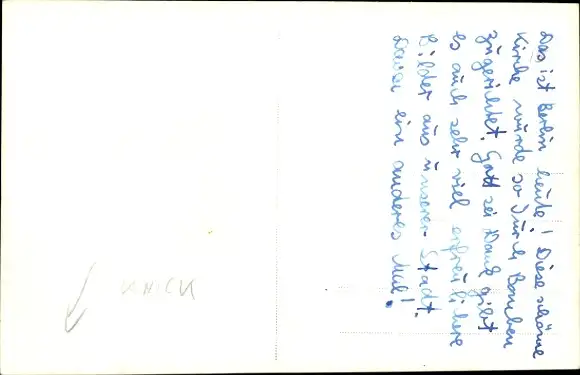 Das ist Berlin heute! Diese schöne
Kirche wurde so durch Bomben
zugerichtet. Gott sei Dank gibt
es auch sehr viel erfreulichere
Bilder aus unserer Stadt.
Davon ein anderes Mal!
KNICK